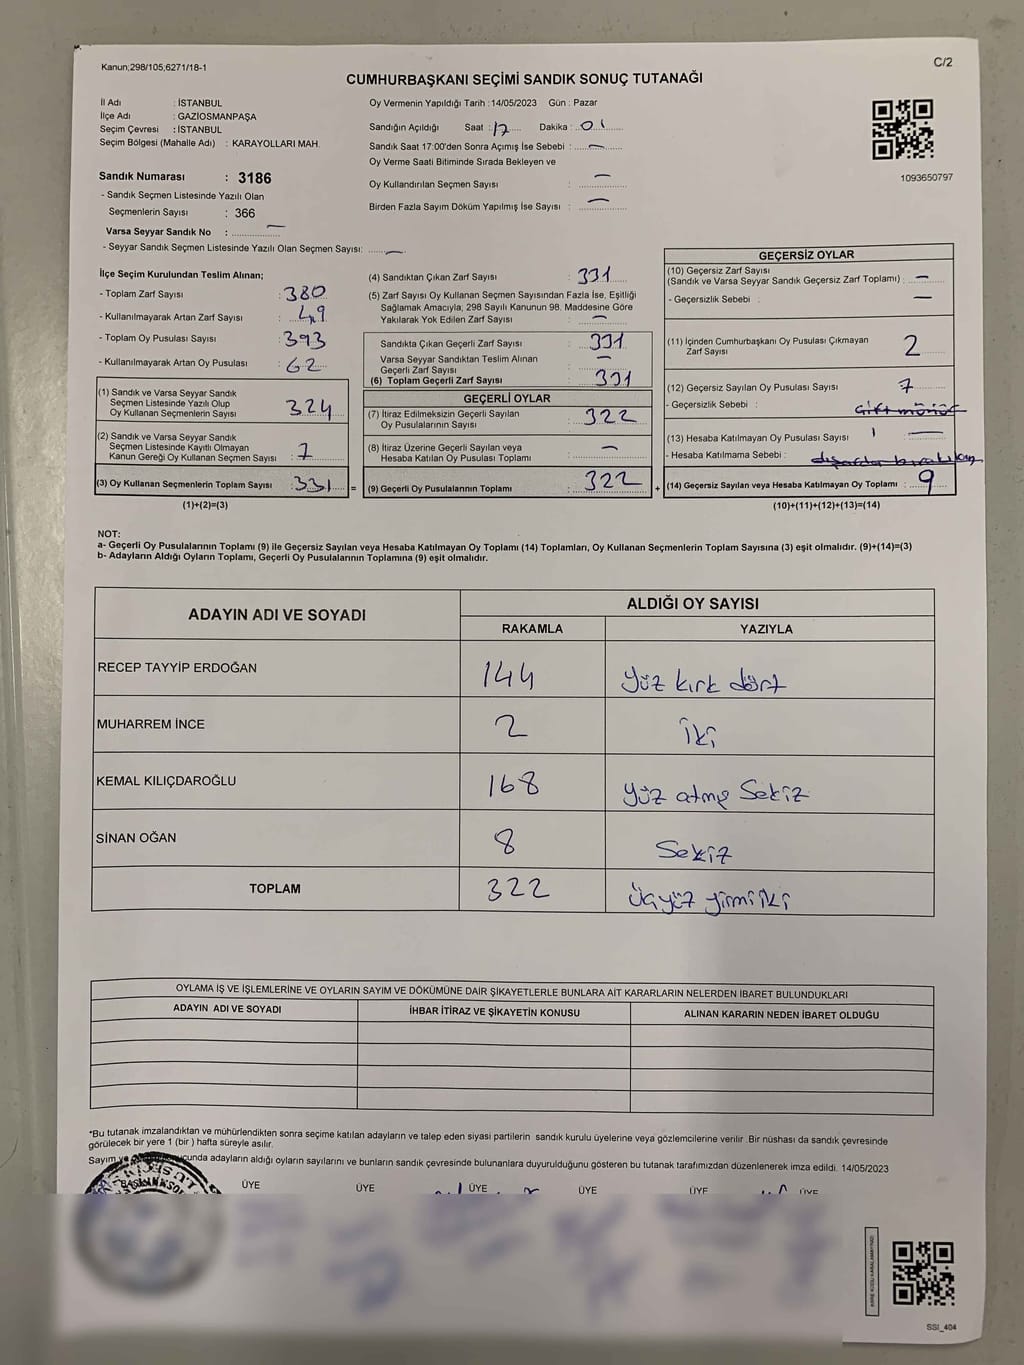 Kanun;298/105,6271/18-1
C/2
CUMHURBAŞKANI SEÇİMİ SANDIK SONUÇ TUTANAĞI
İl Adı : İSTANBUL
İlçe Adı : GAZİOSMANPAŞA
Seçim Çevresi : İSTANBUL
Seçim Bölgesi (Mahalle Adı) : KARAYOLLARI MAH.
Sandık Numarası : 3186
- Sandık Seçmen Listesinde Yazılı Olan
Seçmenlerin Sayısı : 366
Varsa Seyyar Sandık No : —
- Seyyar Sandık Seçmen Listesinde Yazılı Olan Seçmen Sayısı: —
Oy Vermenin Yapıldığı Tarih :14/05/2023 Gün : Pazar
Sandığın Açıldığı Saat : 17 Dakika : 01
Sandık Saat 17:00'den Sonra Açımış İse Sebebi : —
Oy Verme Saati Bitiminde Sırada Bekleyen ve
Oy Kullandırılan Seçmen Sayısı : —
Birden Fazla Sayım Döküm Yapılmış İse Sayısı : —
1093650797
İlçe Seçim Kurulundan Teslim Alınan;
- Toplam Zarf Sayısı : 380
- Kullanılmayarak Artan Zarf Sayısı : 49
- Toplam Oy Pusulası Sayısı : 393
- Kullanılmayarak Artan Oy Pusulası : 62
(1) Sandık ve Varsa Seyyar Sandık
Seçmen Listesinde Yazılı Olup
Oy Kullanan Seçmenlerin Sayısı : 324
(2) Sandık ve Varsa Seyyar Sandık
Seçmen Listesinde Kayıtlı Olmayan
Kanun Gereği Oy Kullanan Seçmen Sayısı : 7
(3) Oy Kullanan Seçmenlerin Toplam Sayısı : 331 =
(1)+(2)=(3)
(4) Sandıktan Çıkan Zarf Sayısı : 331
(5) Zarf Sayısı Oy Kullanan Seçmen Sayısından Fazla İse, Eşitliği
Sağlamak Amacıyla, 298 Sayılı Kanunun 98. Maddesine Göre
Yakılarak Yok Edilen Zarf Sayısı : —
Sandıkta Çıkan Geçerli Zarf Sayısı : 331
Varsa Seyyar Sandıktan Teslim Alınan
Geçerli Zarf Sayısı : —
(6) Toplam Geçerli Zarf Sayısı : 331
GEÇERLİ OYLAR
(7) İtiraz Edilmeksizin Geçerli Sayılan
Oy Pusulalarının Sayısı : 322
(8) İtiraz Üzerine Geçerli Sayılan veya
Hesaba Katılan Oy Pusulası Toplamı : —
(9) Geçerli Oy Pusulalarının Toplamı : 322 +
GEÇERSİZ OYLAR
(10) Geçersiz Zarf Sayısı
(Sandık ve Varsa Seyyar Sandık Geçersiz Zarf Toplamı) : —
- Geçersizlik Sebebi : —
(11) İçinden Cumhurbaşkanı Oy Pusulası Çıkmayan
Zarf Sayısı 2
(12) Geçersiz Sayılan Oy Pusulası Sayısı : 7
- Geçersizlik Sebebi : çift mühür
(13) Hesaba Katılmayan Oy Pusulası Sayısı : —
- Hesaba Katılmama Sebebi :
(14) Geçersiz Sayılan veya Hesaba Katılmayan Oy Toplamı : 9
(10)+(11)+(12)+(13)=(14)
NOT:
a- Geçerli Oy Pusulalarının Toplamı (9) ile Geçersiz Sayılan veya Hesaba Katılmayan Oy Toplamı (14) Toplamları, Oy Kullanan Seçmenlerin Toplam Sayısına (3) eşit olmalıdır. (9)+(14)=(3)
b- Adayların Aldığı Oyların Toplamı, Geçerli Oy Pusulalarının Toplamına (9) eşit olmalıdır.
ADAYIN ADI VE SOYADI
ALDIĞI OY SAYISI
RAKAMLA YAZIYLA
RECEP TAYYİP ERDOĞAN 144 yüz kırk dört
MUHARREM İNCE 2 iki
KEMAL KILIÇDAROĞLU 168 yüz atmış Sekiz
SİNAN OĞAN 8 Sekiz
TOPLAM 322 üçyüz yirmi iki
OYLAMA İŞ VE İŞLEMLERİNE VE OYLARIN SAYIM VE DÖKÜMÜNE DAİR ŞİKAYETLERLE BUNLARA AİT KARARLARIN NELERDEN İBARET BULUNDUKLARI
ADAYIN ADI VE SOYADI İHBAR İTİRAZ VE ŞİKAYETİN KONUSU ALINAN KARARIN NEDEN İBARET OLDUĞU
*Bu tutanak imzalandıktan ve mühürlendikten sonra seçime katılan adayların ve talep eden siyasi partilerin sandık kurulu üyelerine veya gözlemcilerine verilir .Bir nüshası da sandık çevresinde
görülecek bir yere 1 (bir ) hafta süreyle asılır.
Sayım ve adayların aldığı oyların sayılarını ve bunların sandık çevresinde bulunanlara duyurulduğunu gösteren bu tutanak tarafımızdan düzenlenerek imza edildi. 14/05/2023
ÜYE ÜYE ÜYE ÜYE ÜYE ÜYE
SSI_404